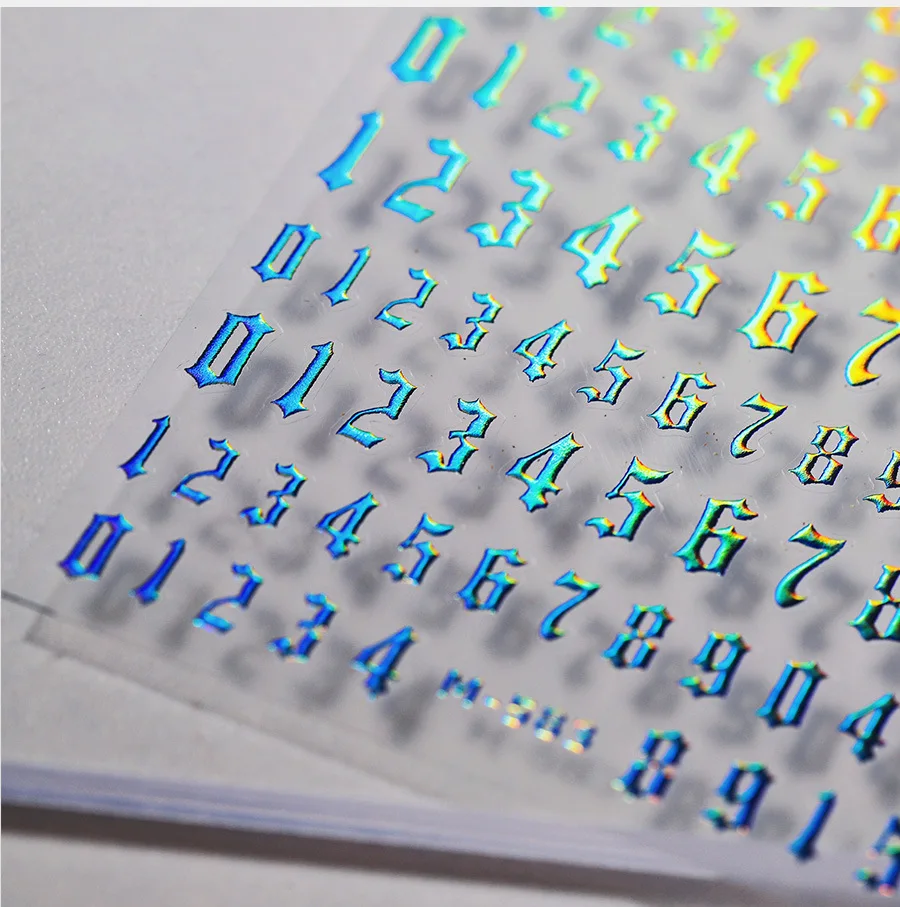 2 3 4 5
0 1 2 3 4 5 6
1 2 3 4 5 6 7
0 1 2 3 4 5 6 7 8 9
0 1 2 3 4 5 6 7 8
1 2 3 4 5 6 7 8 9 0 4
0 1 2 3 4
8 9 1 5